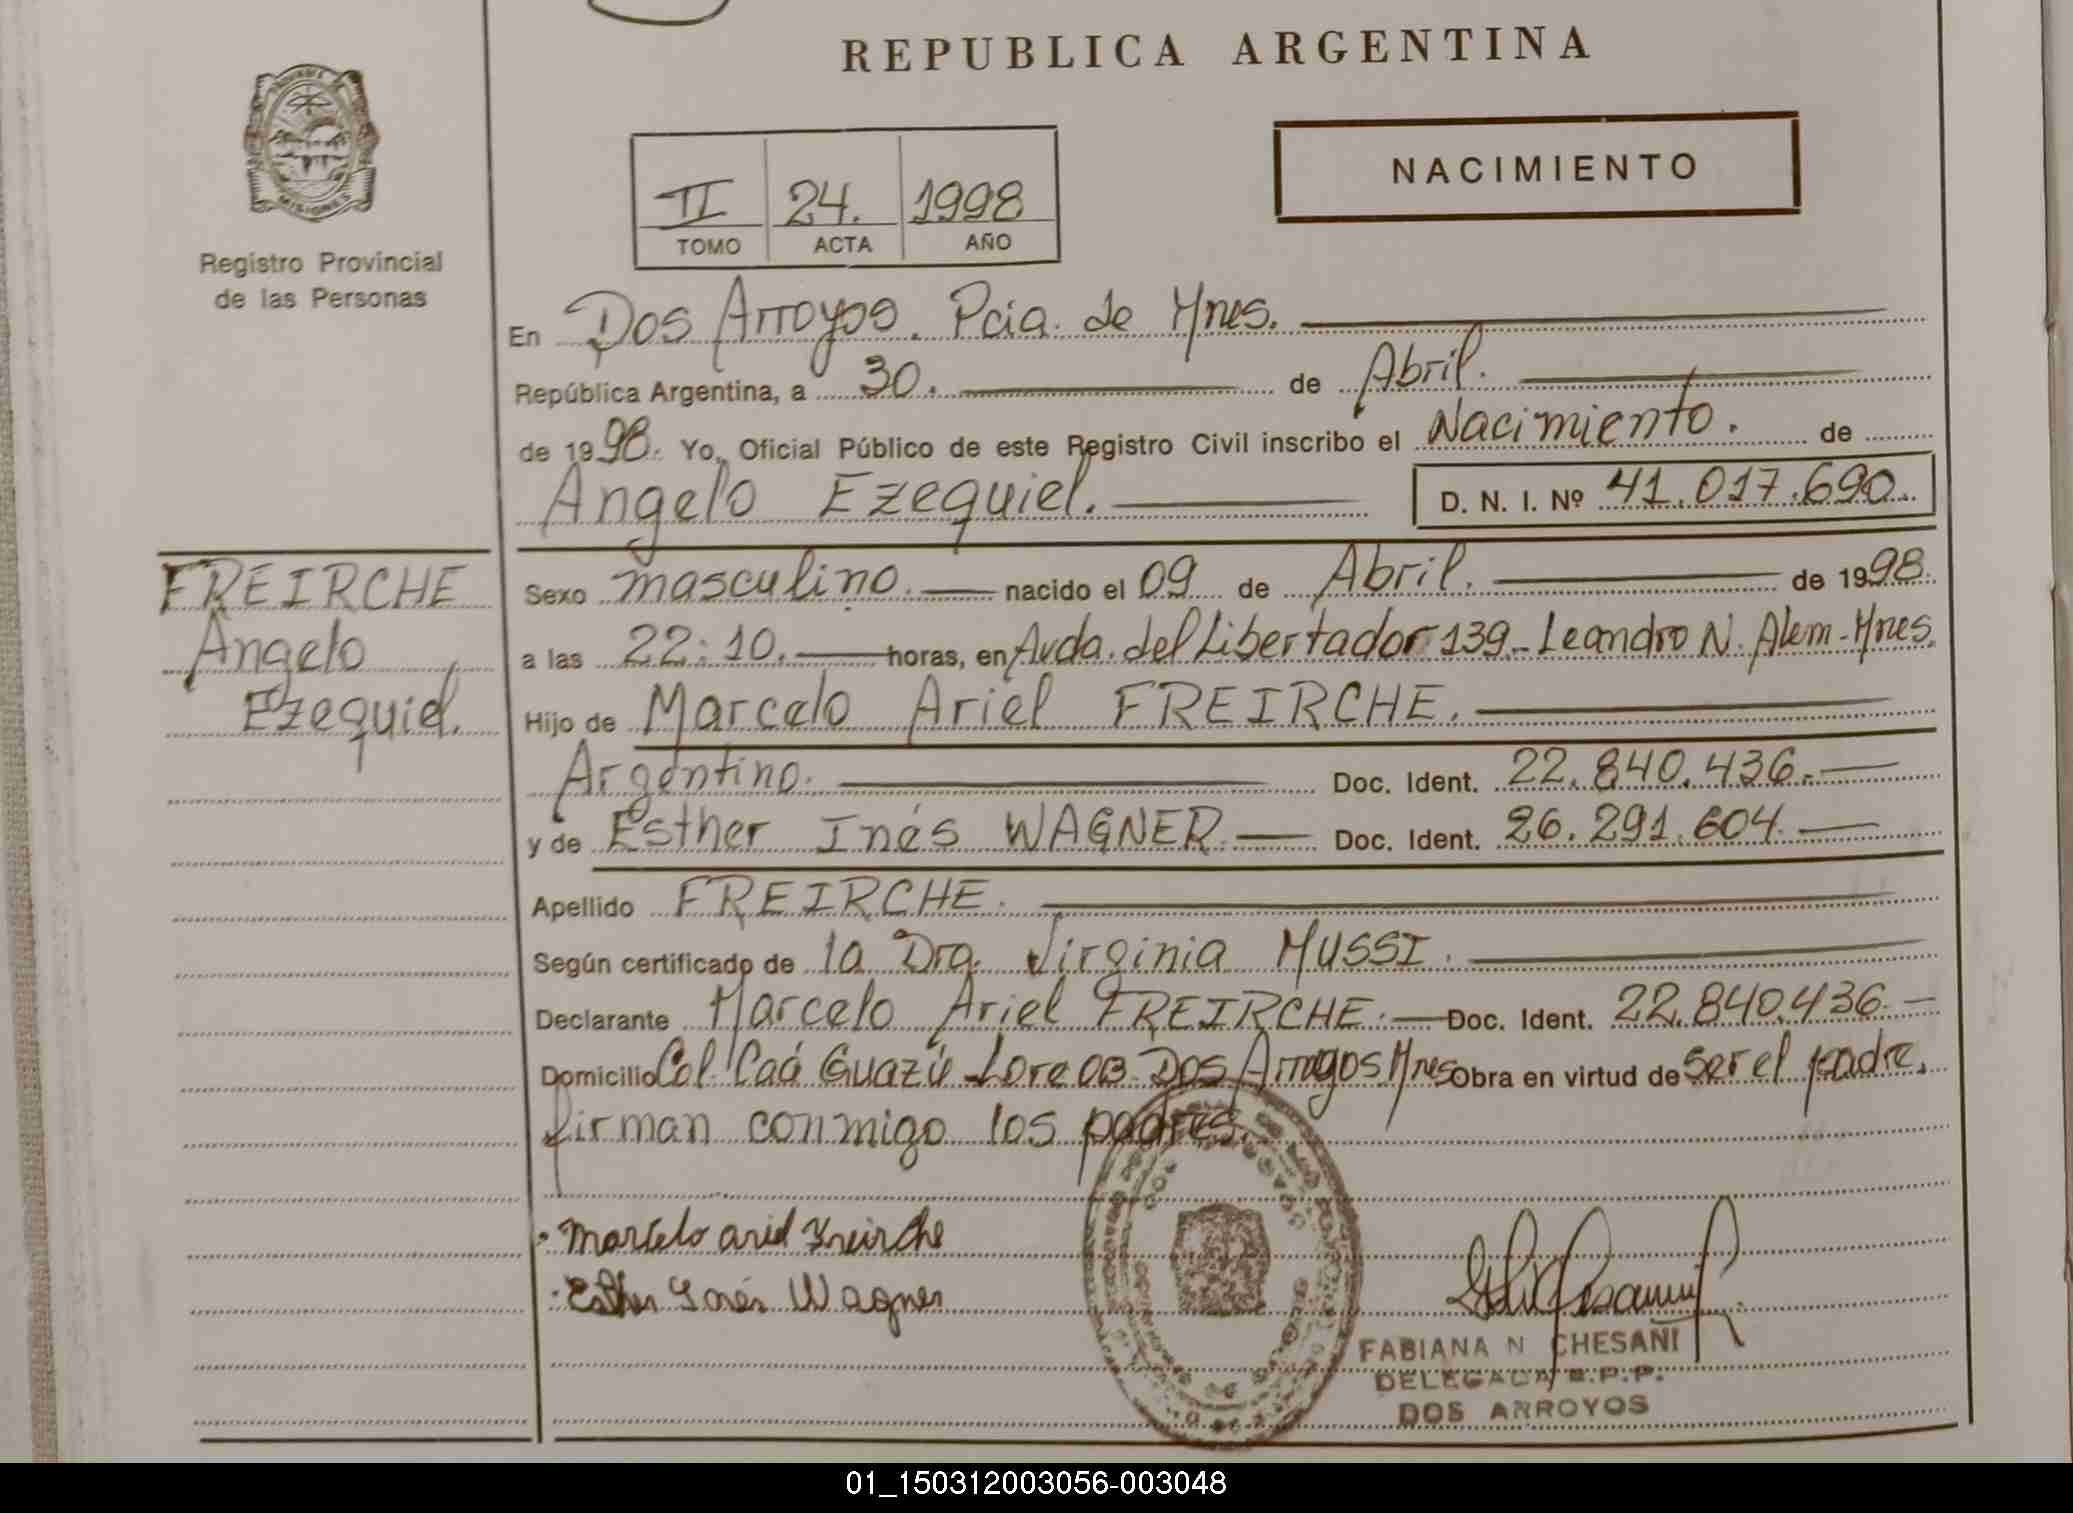 REPUBLICA ARGENTINA
MISIONES
Registro Provincial
de las Personas
II 24. 1998
TOMO ACTA AÑO
NACIMIENTO
En Dos Arroyos. Pcia. de Mnes.
República Argentina, a 30. de Abril.
de 1998. Yo, Oficial Público de este Registro Civil inscribo el Nacimiento. de
Angelo Ezequiel. D. N. I. Nº 41.017.690.
FREIRCHE
Angelo
Ezequiel.
Sexo masculino. nacido el 09 de Abril. de 1998.
a las 22:10. horas, en Avda. del Libertador 139.- Leandro N. Alem-Mnes.
Hijo de Marcelo Ariel FREIRCHE.
Argentino. Doc. Ident. 22.840.436.-
y de Esther Inés WAGNER. Doc. Ident. 26.291.604.
Apellido FREIRCHE.
Según certificado de la Dra. Virginia MUSSI.
Declarante Marcelo Ariel FREIRCHE. Doc. Ident. 22.840.436.-
Domicilio Col. Caá Guazú Lore Dos Arroyos Mnes Obra en virtud de ser el padre.
firman conmigo los padres.
Marcelo ariel Freirche
Esther Inés Wagner
FABIANA N CHESANI
DELEGADA R.P.P.
DOS ARROYOS
01_150312003056-003048